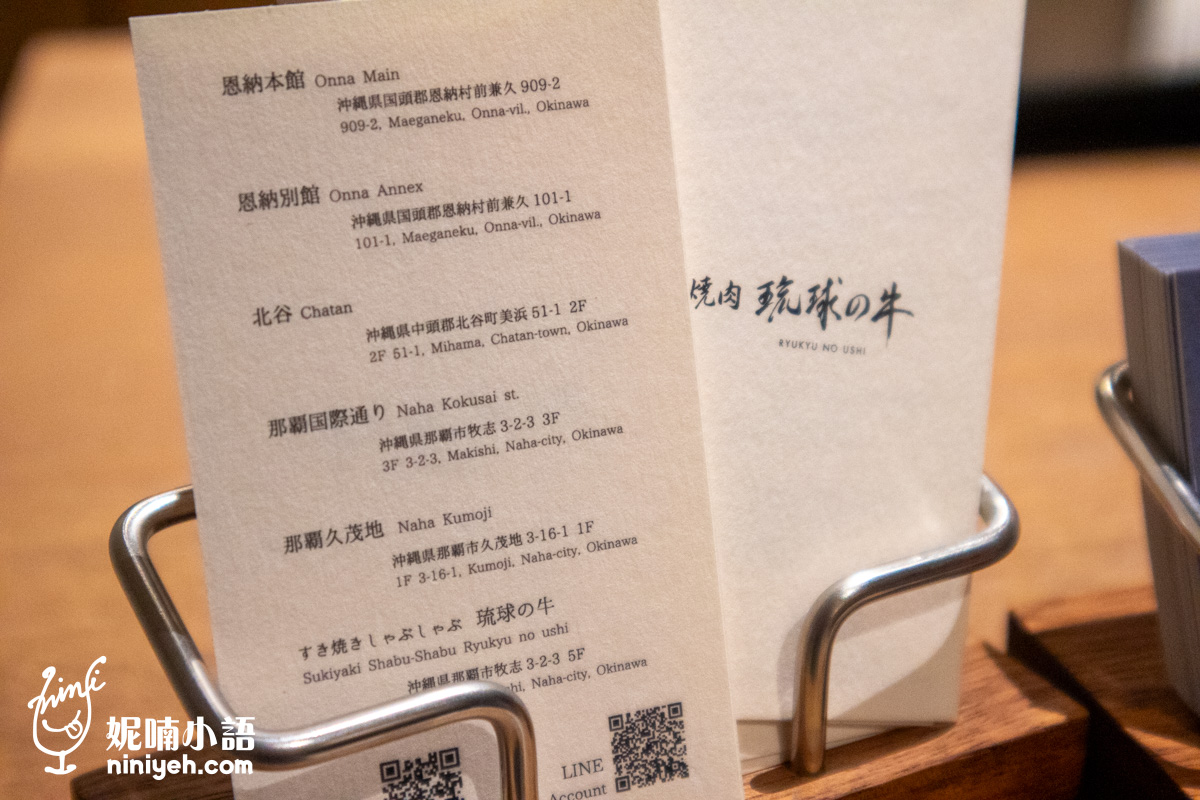 恩納本館 Onna Main
沖縄県国頭郡恩納村前兼久 909-2
909-2, Maeganeku, Onna-vil., Okinawa
恩納別館 Onna Annex
沖縄県国頭郡恩納村前兼久 101-1
101-1, Maeganeku, Onna-vil., Okinawa
北谷 Chatan
沖縄県中頭郡北谷町美浜 51-1 2F
2F 51-1, Mihama, Chatan-town, Okinawa
那覇国際通り Naha Kokusai st.
沖縄県那覇市牧志 3-2-3 3F
3F 3-2-3, Makishi, Naha-city, Okinawa
那覇久茂地 Naha Kumoji
沖縄県那覇市久茂地 3-16-1 1F
1F 3-16-1, Kumoji, Naha-city, Okinawa
すき焼きしゃぶしゃぶ 琉球の牛
Sukiyaki Shabu-Shabu Ryukyu no ushi
沖縄県那覇市牧志 3-2-3 5F
Naha-city, Okinawa
LINE
Account
焼肉 琉球の牛
RYUKYU NO USHI
nini
妮喃小語
niniyeh.com